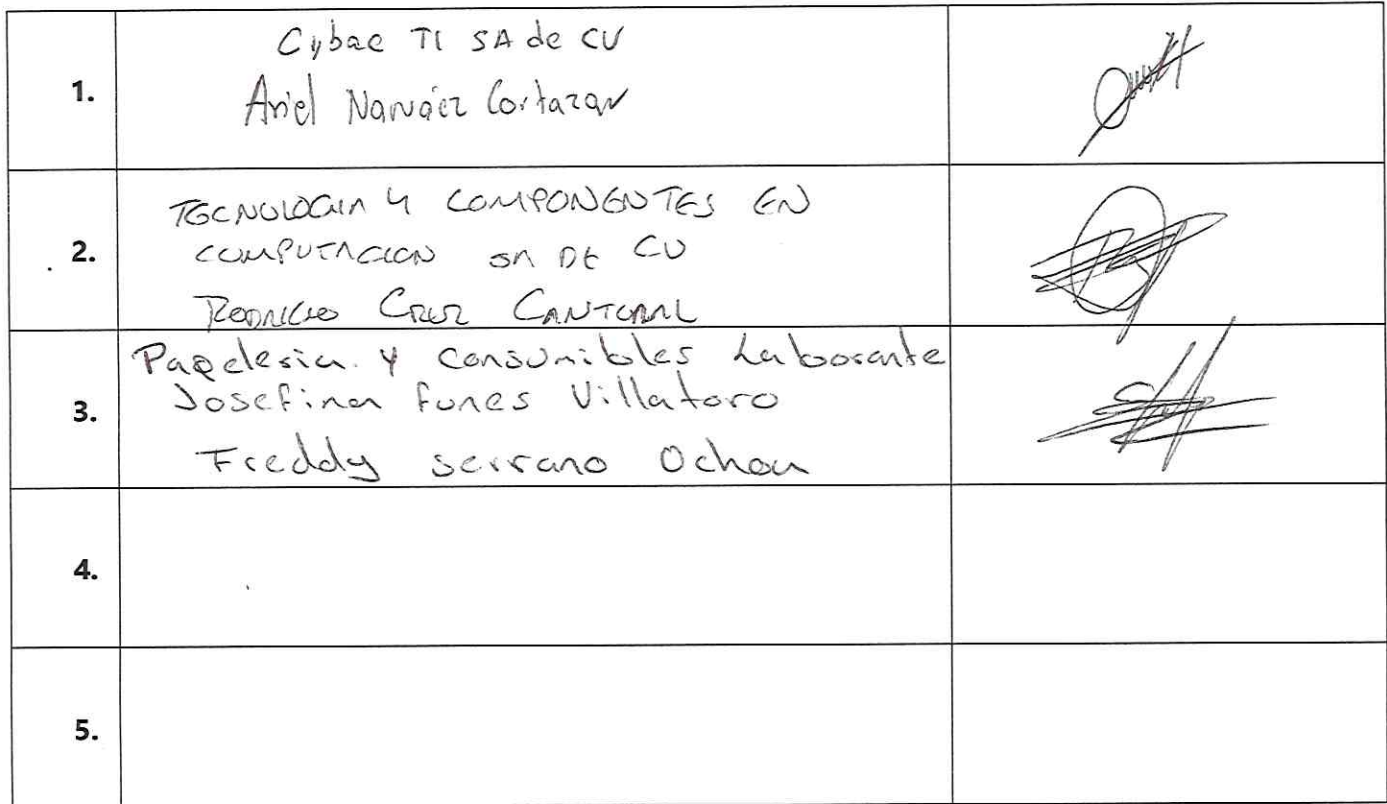 1.
Cybae TI SA de CV
Ariel Narváez Cortazar
2.
TECNOLOGIA Y COMPONENTES EN
COMPUTACION SA DE CV
RODRIGO CRUZ CANTORAL
3.
Papeleria y Consumibles Laborante
Josefina Funes Villatoro
Freddy Serrano Ochoa
4.
5.